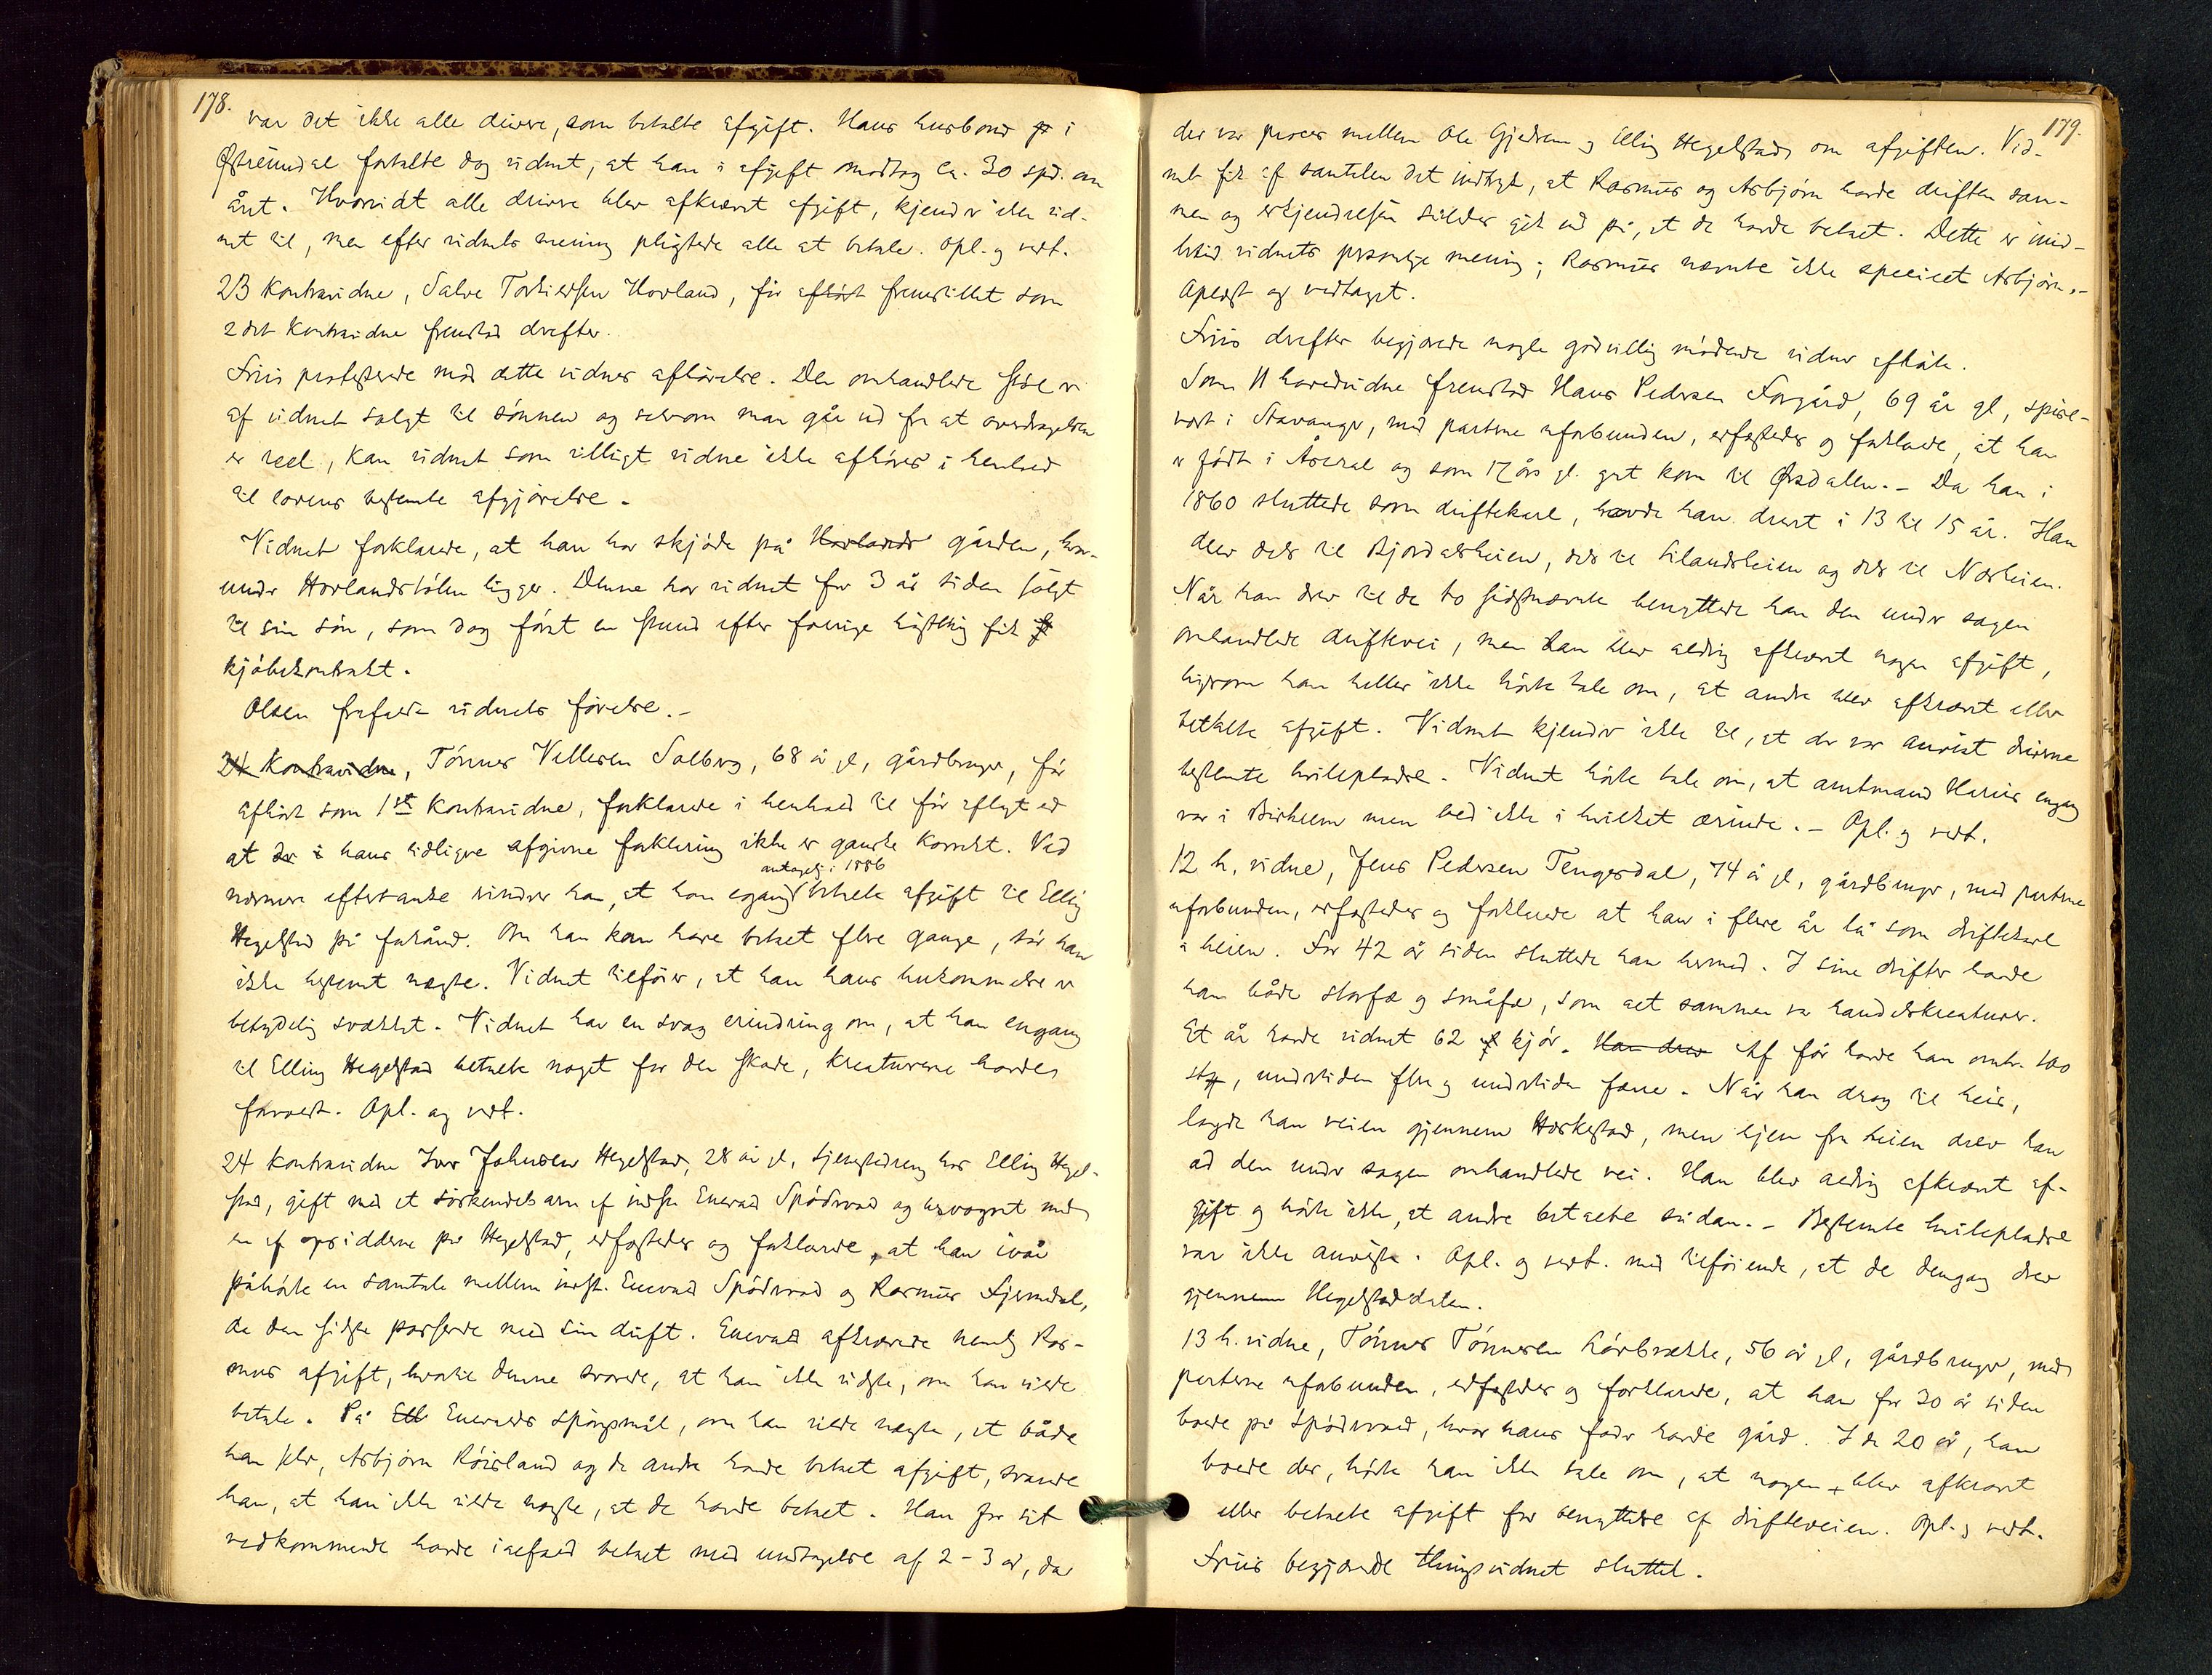 178.
var det ikke alle drivere, som betalte afgift. Hans husbond i
Østreimdal fortalte dog vidnet, at han i afgift modtog ca. 30 spd. om
året. Hvorvidt alle drivere blev afkrævet afgift, kjender ikke vid-
net til, men efter vidnets mening pligtede alle at betale. Opl. og vedt.
23 Kontravidne, Salve Torkiersen Hovland, før afhørt fremstillet som
2det Kontravidne fremstod derefter.
Friis protesterede mod dette vidnes afhørelse. Den omhandlede støl er
af vidnet solgt til sønnen og selvom man går ud fra at overdragelsen
er reel, kan vidnet som villigt vidne ikke afhøres i henhold
til lovens bestemte afgjørelse.
Vidnet forklarede, at han har skjøde på Hovlands gården, hvor-
under Hovlandsstølen ligger. Denne har vidnet for 3 år siden solgt
til sin søn, som dog først en stund efter forrige høstthing fik
kjøbekontrakt.
Olsen frafaldt vidnets førelse.-
24 Kontravidne, Tønnes Vellesen Solberg, 68 år gl, gårdbruger, før
afhørt som 1ste Kontravidne, forklarede i henhold til før aflagt ed
at hans tidligere afgivne forklaring ikke er ganske korrekt. Ved
antagelig i 1886
nærmere eftertanke mindes han, at han engang betalte afgift til Elling
Hegelstad på forhånd. Om han kan have betalt flere gange, tør han
ikke bestemt nægte. Vidnet tilføier, at han hans hukommelse er
betydelig svækket. Vidnet har en svag erindring om, at han engang
til Elling Hegelstad betalte noget for den skade, kreaturerne havde
forvoldt. Opl. og vedt.
24 kontravidne Iver Johnsen Hegelstad, 28 år gl, tjenestedreng hos Elling Hegel-
stad, gift med et søskendebarn af indst. Enevald Spødevold og besvogret med
en af opsidderne på Hegelstad, edfæstedes og forklarede, at han ivår
påhørte en samtale mellem indst. Enevald Spødevold og Rasmus Fjermedal,
da den sidste passerede med sin drift. Enevald afkrævede nemlig Ras-
mus afgift, hvortil denne svarede, at han ikke vidste, om han vilde
betale. På Ell Enevalds spørgsmål, om han vilde nægte, at både
han selv, Asbjørn Røisland og de andre havde betalt afgift, svarede
han, at han ikke vilde nægte, at de havde betalt. Han for sit
vedkommende havde iaefald betalt med undtagelse af 2-3 år, da
179.
der var proces mellem Ole Gjedrem og Elling Hegelstad om afgiften. Vid-
net fik af samtalen det indtryk, at Rasmus og Asbjørn havde driften sam-
men og erkjendelsen således gik ud på, at de havde betalt. Dette er imid-
lertid vidnets personlige mening; Rasmus nævnte ikke specielt Asbjørn.-
Oplæst og vedtaget.
Friis derefter begjærede nogle godvillig mødende vidner afhørte.
Som 11 hovedvidne fremstod Hans Pedersen Forgård, 69 år gl, spise-
vært i Stavanger, med parterne uforbunden, edfæstedes og forklarede, at han
er født i Åseral og som 17 års gl. gut kom til Ørsdalen.- Da han i
1860 sluttede som driftekarl, havde han drevt i 13 til 15 år. Han
drev dels til Bjordalsheien, dels til Lilandsheien og dels til Nesheien.
Når han drev til de to sidstnævnte benyttede han den under sagen
omhandlede driftevei, men han blev aldrig afkrævet nogen afgift,
ligesom han heller ikke hørte tale om, at andre blev afkrævet eller
betalte afgift. Vidnet kjender ikke til, at der var anvist driverne
bestemte hvilepladse. Vidnet hørte tale om, at amtmand Harris engang
var i Birkrem men ved ikke i hvilket ærinde.- Opl. og vedt.
12 h. vidne, Jens Pedersen Tengesdal, 74 år gl, gårdbruger, med parterne
uforbunden, edfæstedes og forklarede at han i flere år lå som driftekarl
i heien. For 42 år siden sluttede han hermed. I sine drifter havde
han både storfæ og småfæ, som alt sammen var handelskreaturer.
Et år havde vidnet 62 kjør. Han drev Af får havde han omtr. 100
stk, undertiden flere og undertiden færre. Når han drog til heis,
lagde han veien gjennem Hærkestad, men hjem fra heien drev han
ad den under sagen omhandlede vei. Han blev aldrig afkrævet af-
gift og hørte ikke, at andre betalte sådan.- Bestemte hvilepladse
var ikke anviste. Opl. og vedt. med tilføiende, at de dengang drev
gjennem Hegelstaddalen.
13 h. vidne, Tønnes Tønnesen Hårbrække, 56 år gl, gårdbruger, med
parterne uforbunden, edfæstedes og forklarede, at han for 30 år siden
boede på Spødevold, hvor hans fader havde gård. I de 20 år, han
boede der, hørte han ikke tale om, at nogen blev afkrævet
eller betalte afgift for benyttelse af drifteveien. Opl. og vedt.
Friis begjærede thingsvidnet sluttet.